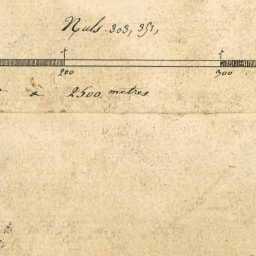 Nuls. 303, 351,
200 300
a 2500 metres